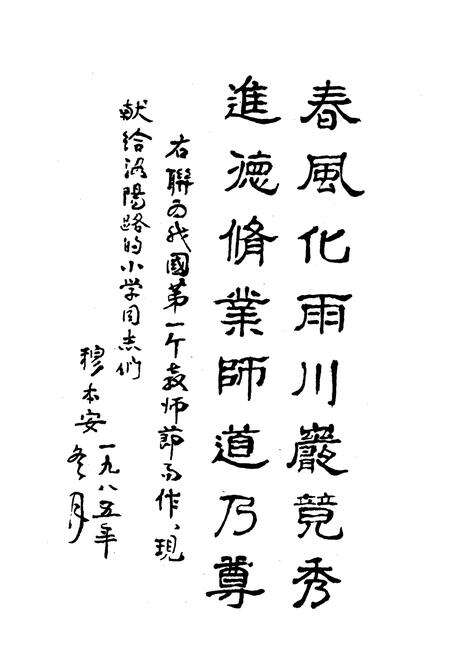 春風化雨川巖竟秀
進德脩業師道乃尊
右聯為我國第一个教师節而作、現
献给洛陽路的小学同志們
穆本安
一九八五年
冬月